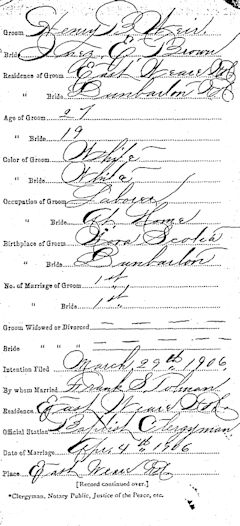 Groom Henry Weir
Bride E. Brown
Residence of Groom East Weare NH
" Bride Dunbarton NH
Age of Groom 27
" Bride 19
Color of Groom White
" Bride White
Occupation of Groom Laborer
" Bride At Home
Birthplace of Groom Nova Scotia
" Bride Dunbarton
No. of Marriage of Groom 1st
" Bride 1st
Groom Widowed or Divorced — — — —
Bride " " — — — —
Intention Filed March, 29th, 1906,
By whom Married Frank S. Tolman
Residence East Weare, NH
Official Station Baptist Clergyman
Date of Marriage Apr. 4th, 1906
Place East Weare NH.
[Record continued over.]
*Clergyman, Notary Public, Justice of the Peace, etc.